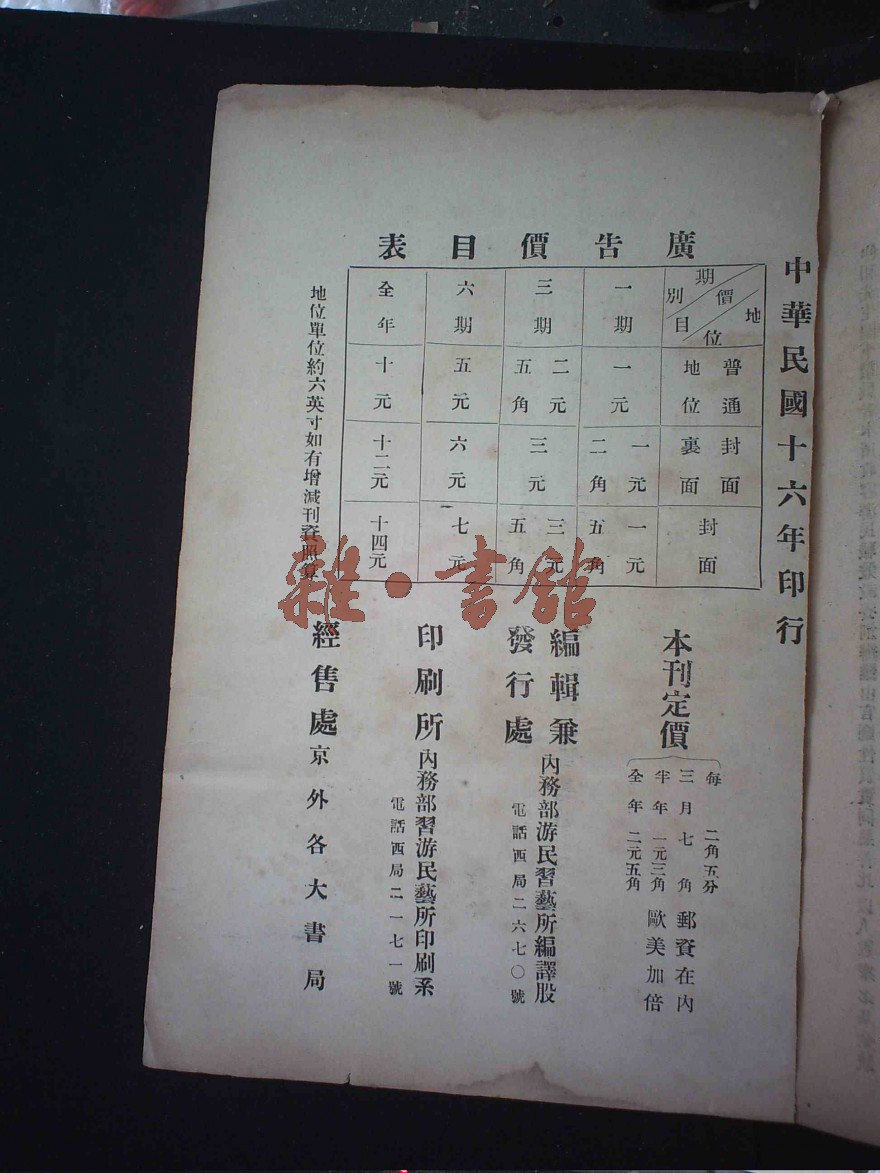 中華民國十六年印行
廣告價目表
期別 價目 地位
普通地位
封面裏面
封面
一期
一元
一元二角
一元五角
三期
二元五角
三元
三元五角
六期
五元
六元
七元
全年
十元
十二元
十四元
地位單位約六英寸如有增減刊資照算
本刊定價
每 二角五分
三月七角
半年一元三角
全年二元五角
郵資在內
歐美加倍
編輯兼
發行處
內務部游民習藝所編譯股
電話西局二六七〇號
印刷所
內務部習游民藝所印刷系
電話西局二一七一號
經售處
京外各大書局
雜·書館